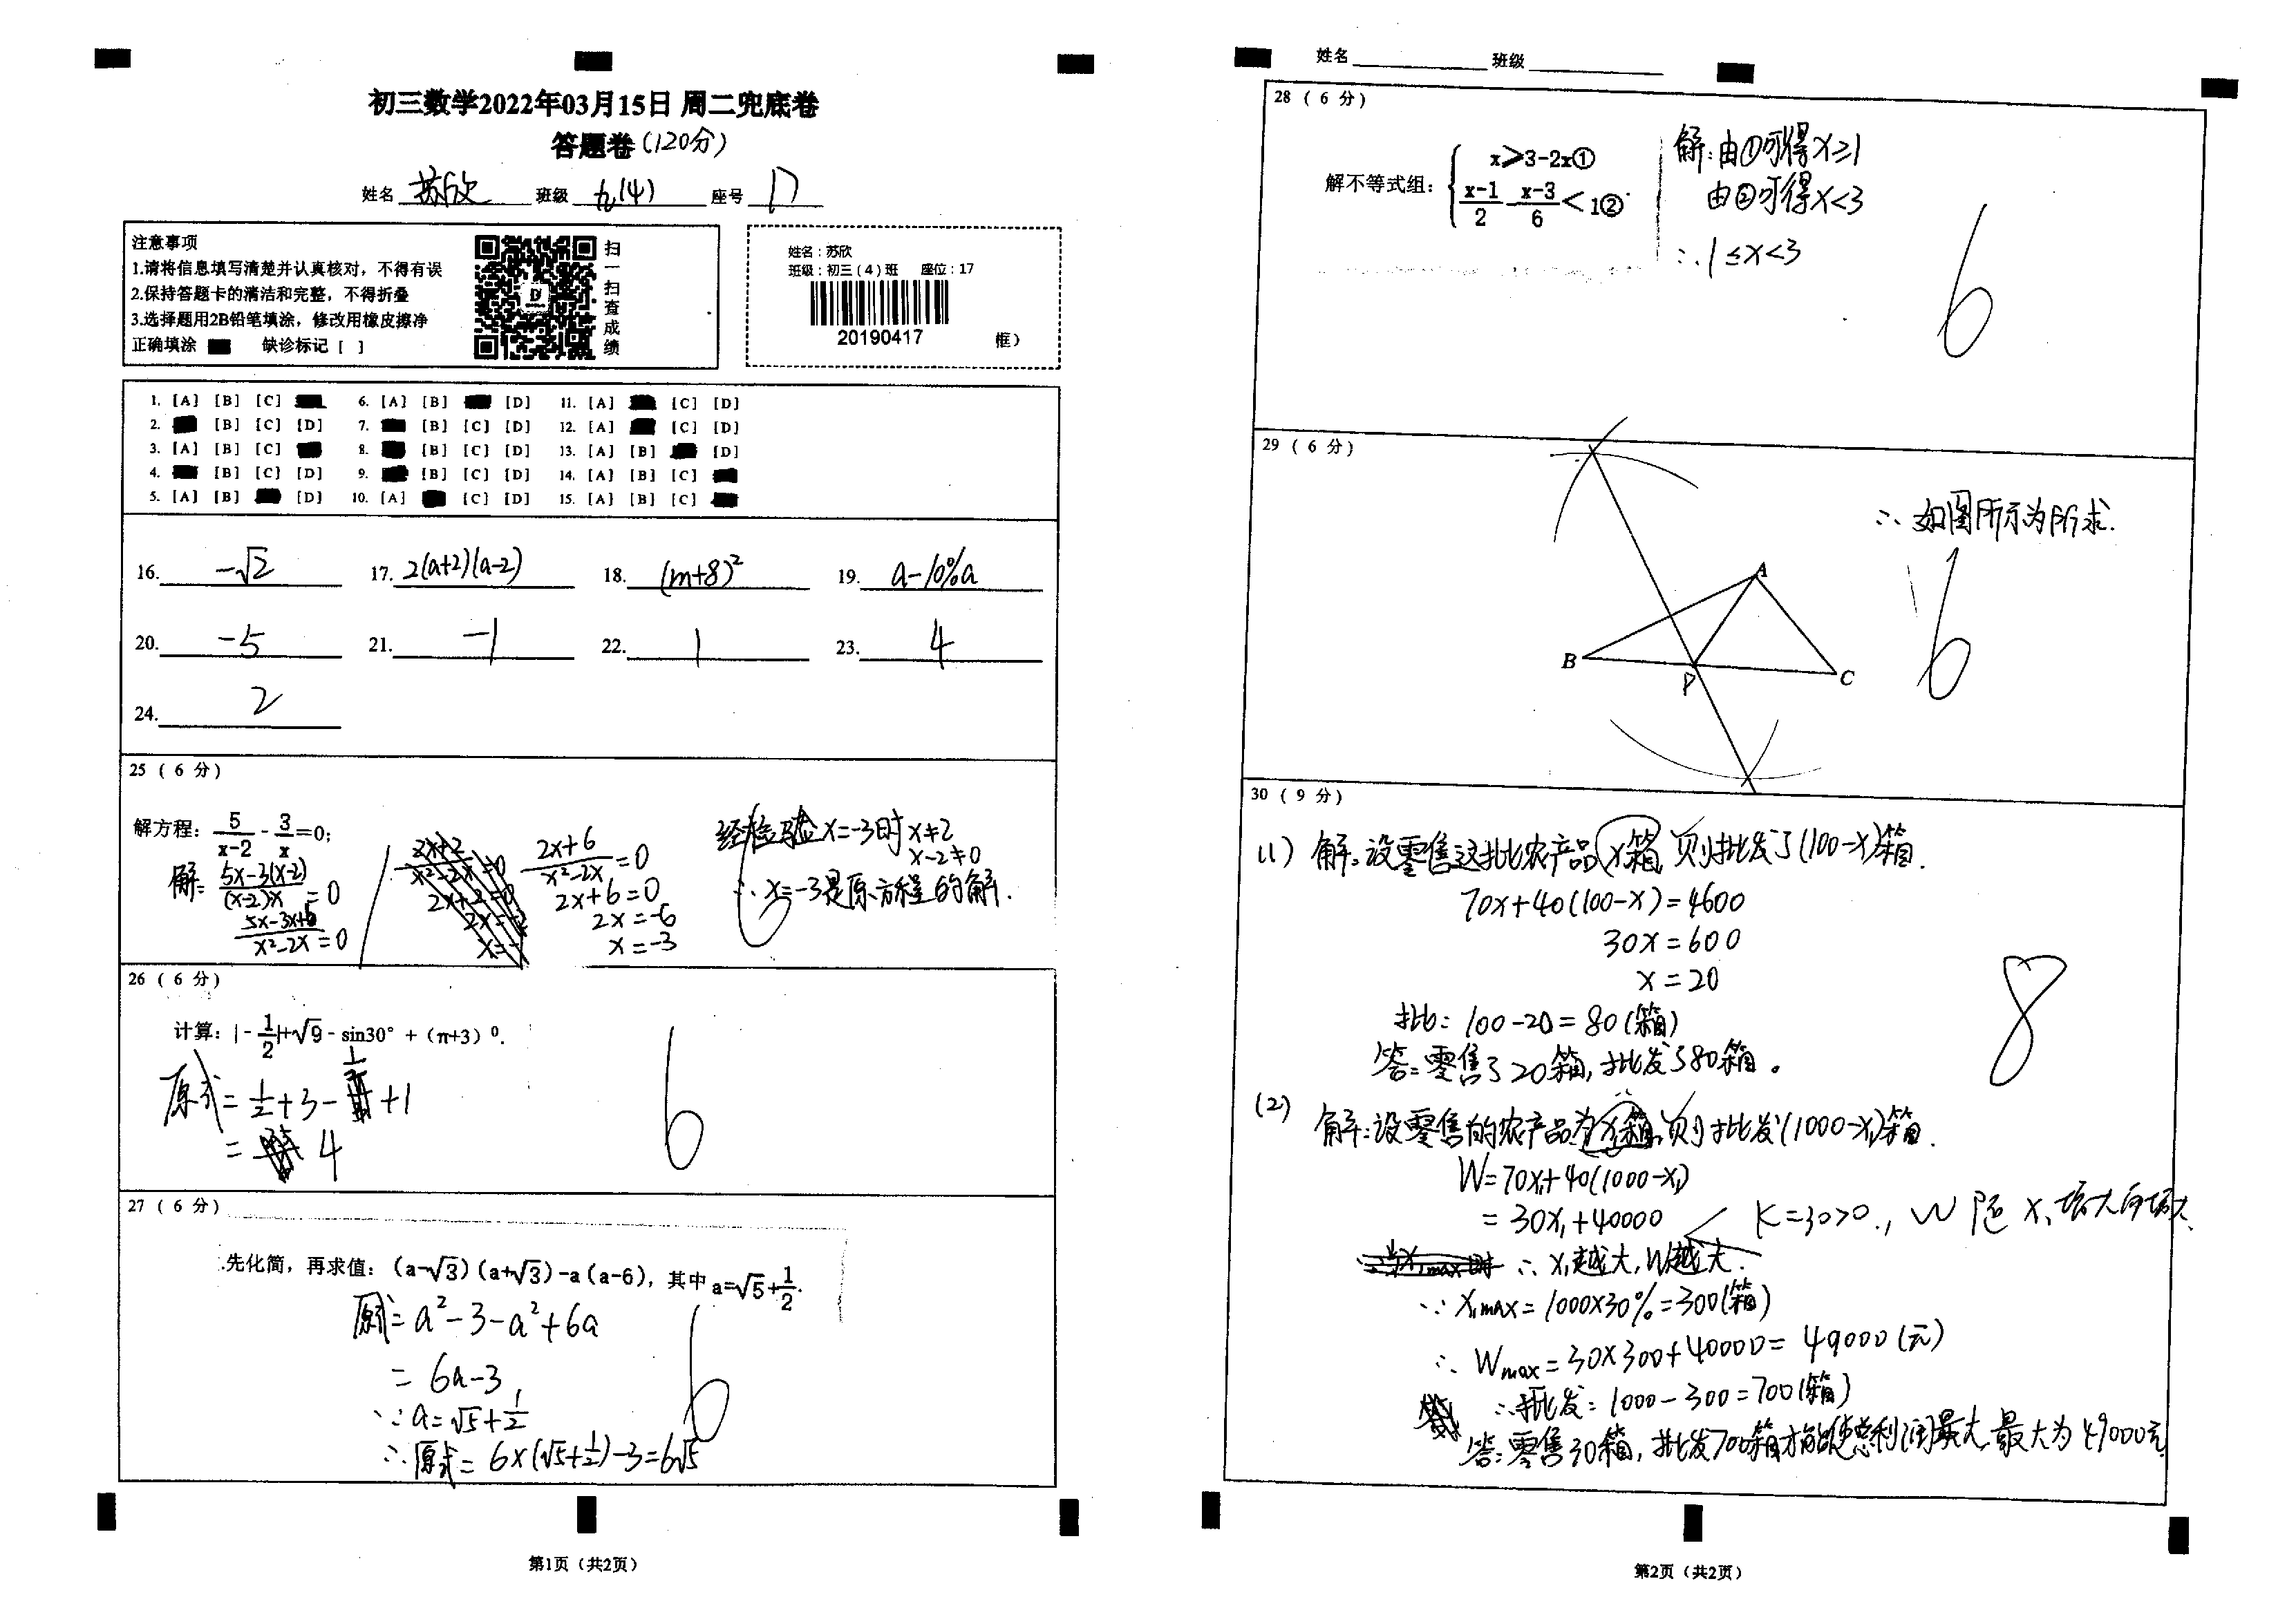 初三数学2022年03月15日 周二兜底卷
答题卷(120分)
姓名 苏欣 班级 九(4) 座号 17
注意事项
1.请将信息填写清楚并认真核对，不得有误
2.保持答题卡的清洁和完整，不得折叠
3.选择题用2B铅笔填涂，修改用橡皮擦净
正确填涂 缺诊标记 [ ]
扫一扫查成绩
姓名：苏欣
班级：初三（4）班 座位：17
20190417
框）
1. [A] [B] [C] 6. [A] [B] [D] 11. [A] [C] [D]
2. [B] [C] [D] 7. [B] [C] [D] 12. [A] [C] [D]
3. [A] [B] [C] 8. [B] [C] [D] 13. [A] [B] [D]
4. [B] [C] [D] 9. [B] [C] [D] 14. [A] [B] [C]
5. [A] [B] [D] 10. [A] [C] [D] 15. [A] [B] [C]
16. -√2 17. 2(a+2)(a-2) 18. (m+8)² 19. a-10%a
20. -5 21. -1 22. 1 23. 4
24. 2
25 ( 6 分)
解方程：5/(x-2) - 3/x =0;
解: (5x-3(x-2))/((x-2)x) = 0
(5x-3x+6)/(x²-2x) = 0
(2x+6)/(x²-2x) = 0
2x+6=0
2x=-6
x=-3
经检验x=-3时x≠2
x-2≠0
∴x=-3是原方程的解.
6
26 ( 6 分)
计算：|-1/2|+√9 - sin30° +（π+3）⁰.
原式= 1/2+3-1/2+1
= 4
6
27 ( 6 分)
先化简，再求值：(a-√3)(a+√3)-a(a-6)，其中a=√5+1/2.
原式= a²-3-a²+6a
= 6a-3
∵a=√5+1/2
∴原式= 6×(√5+1/2)-3=6√5
6
第1页（共2页）
姓名 班级
28 ( 6 分)
解不等式组：{ x≥3-2x①
(x-1)/2 - (x-3)/6 < 1②
解:由①可得x≥1
由②可得x<3
∴1≤x<3
6
29 ( 6 分)
∴如图所示为所求.
A
B
P
C
6
30 ( 9 分)
(1) 解:设零售这批农产品x箱,则批发了(100-x)箱.
70x+40(100-x)=4600
30x=600
x=20
批: 100-20=80(箱)
答:零售了20箱,批发了80箱。
8
(2) 解:设零售的农产品为x₁箱,则批发(1000-x₁)箱.
W=70x₁+40(1000-x₁)
= 30x₁+40000
K=30>0., W随x₁增大而增大.
∴x₁越大,W越大.
∵x₁max=1000×30%=300(箱)
∴Wmax=30×300+40000=49000(元)
∴批发:1000-300=700(箱)
答:零售30箱,批发700箱才能使总利润最大,最大为49000元
第2页（共2页）